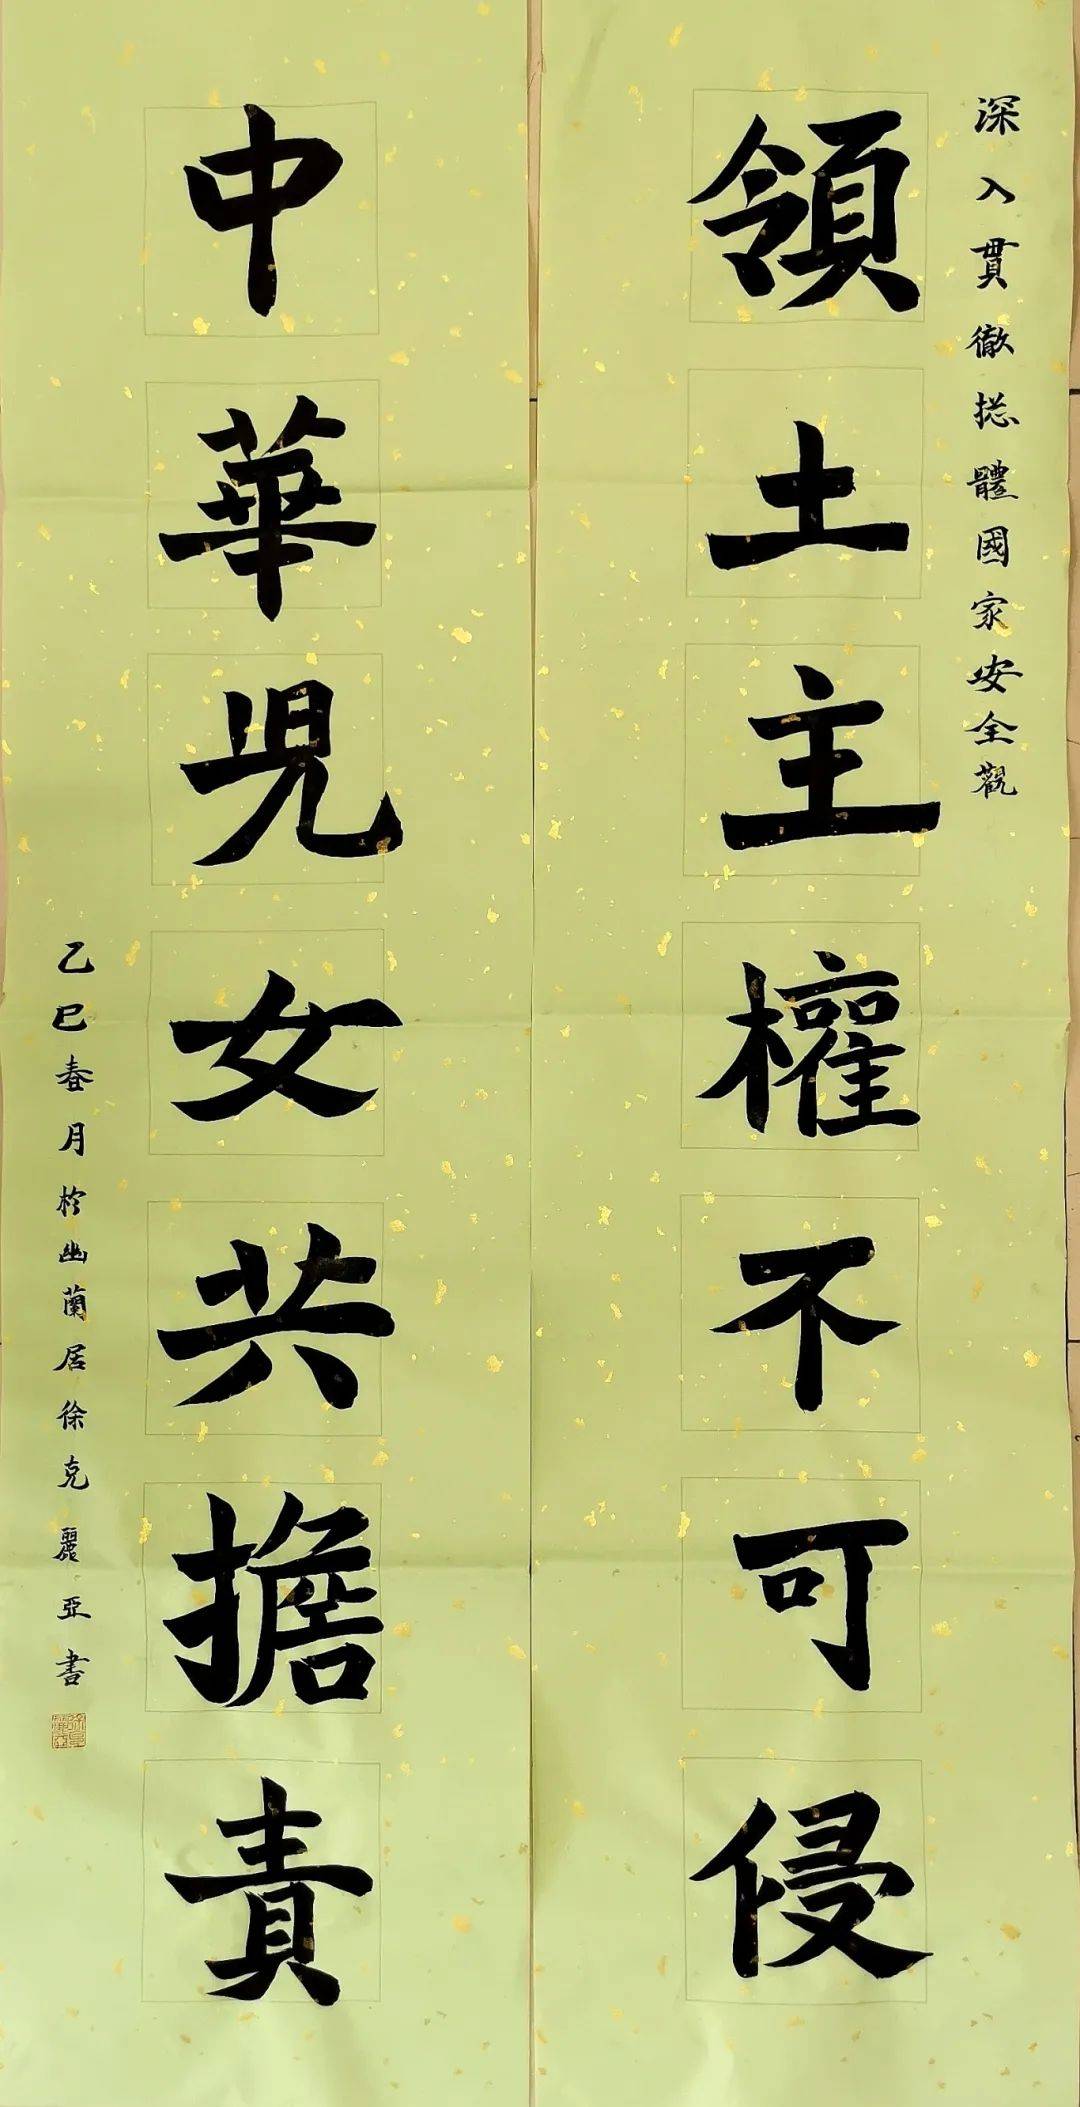 深入貫徹揔體國家安全觀
領土主權不可侵
中華児女共擔責
乙巳春月於幽蘭居徐克麗亞書